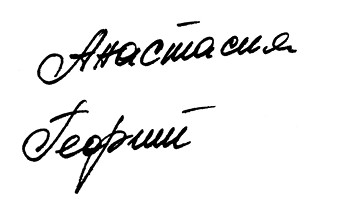 Анастасия
Георгий